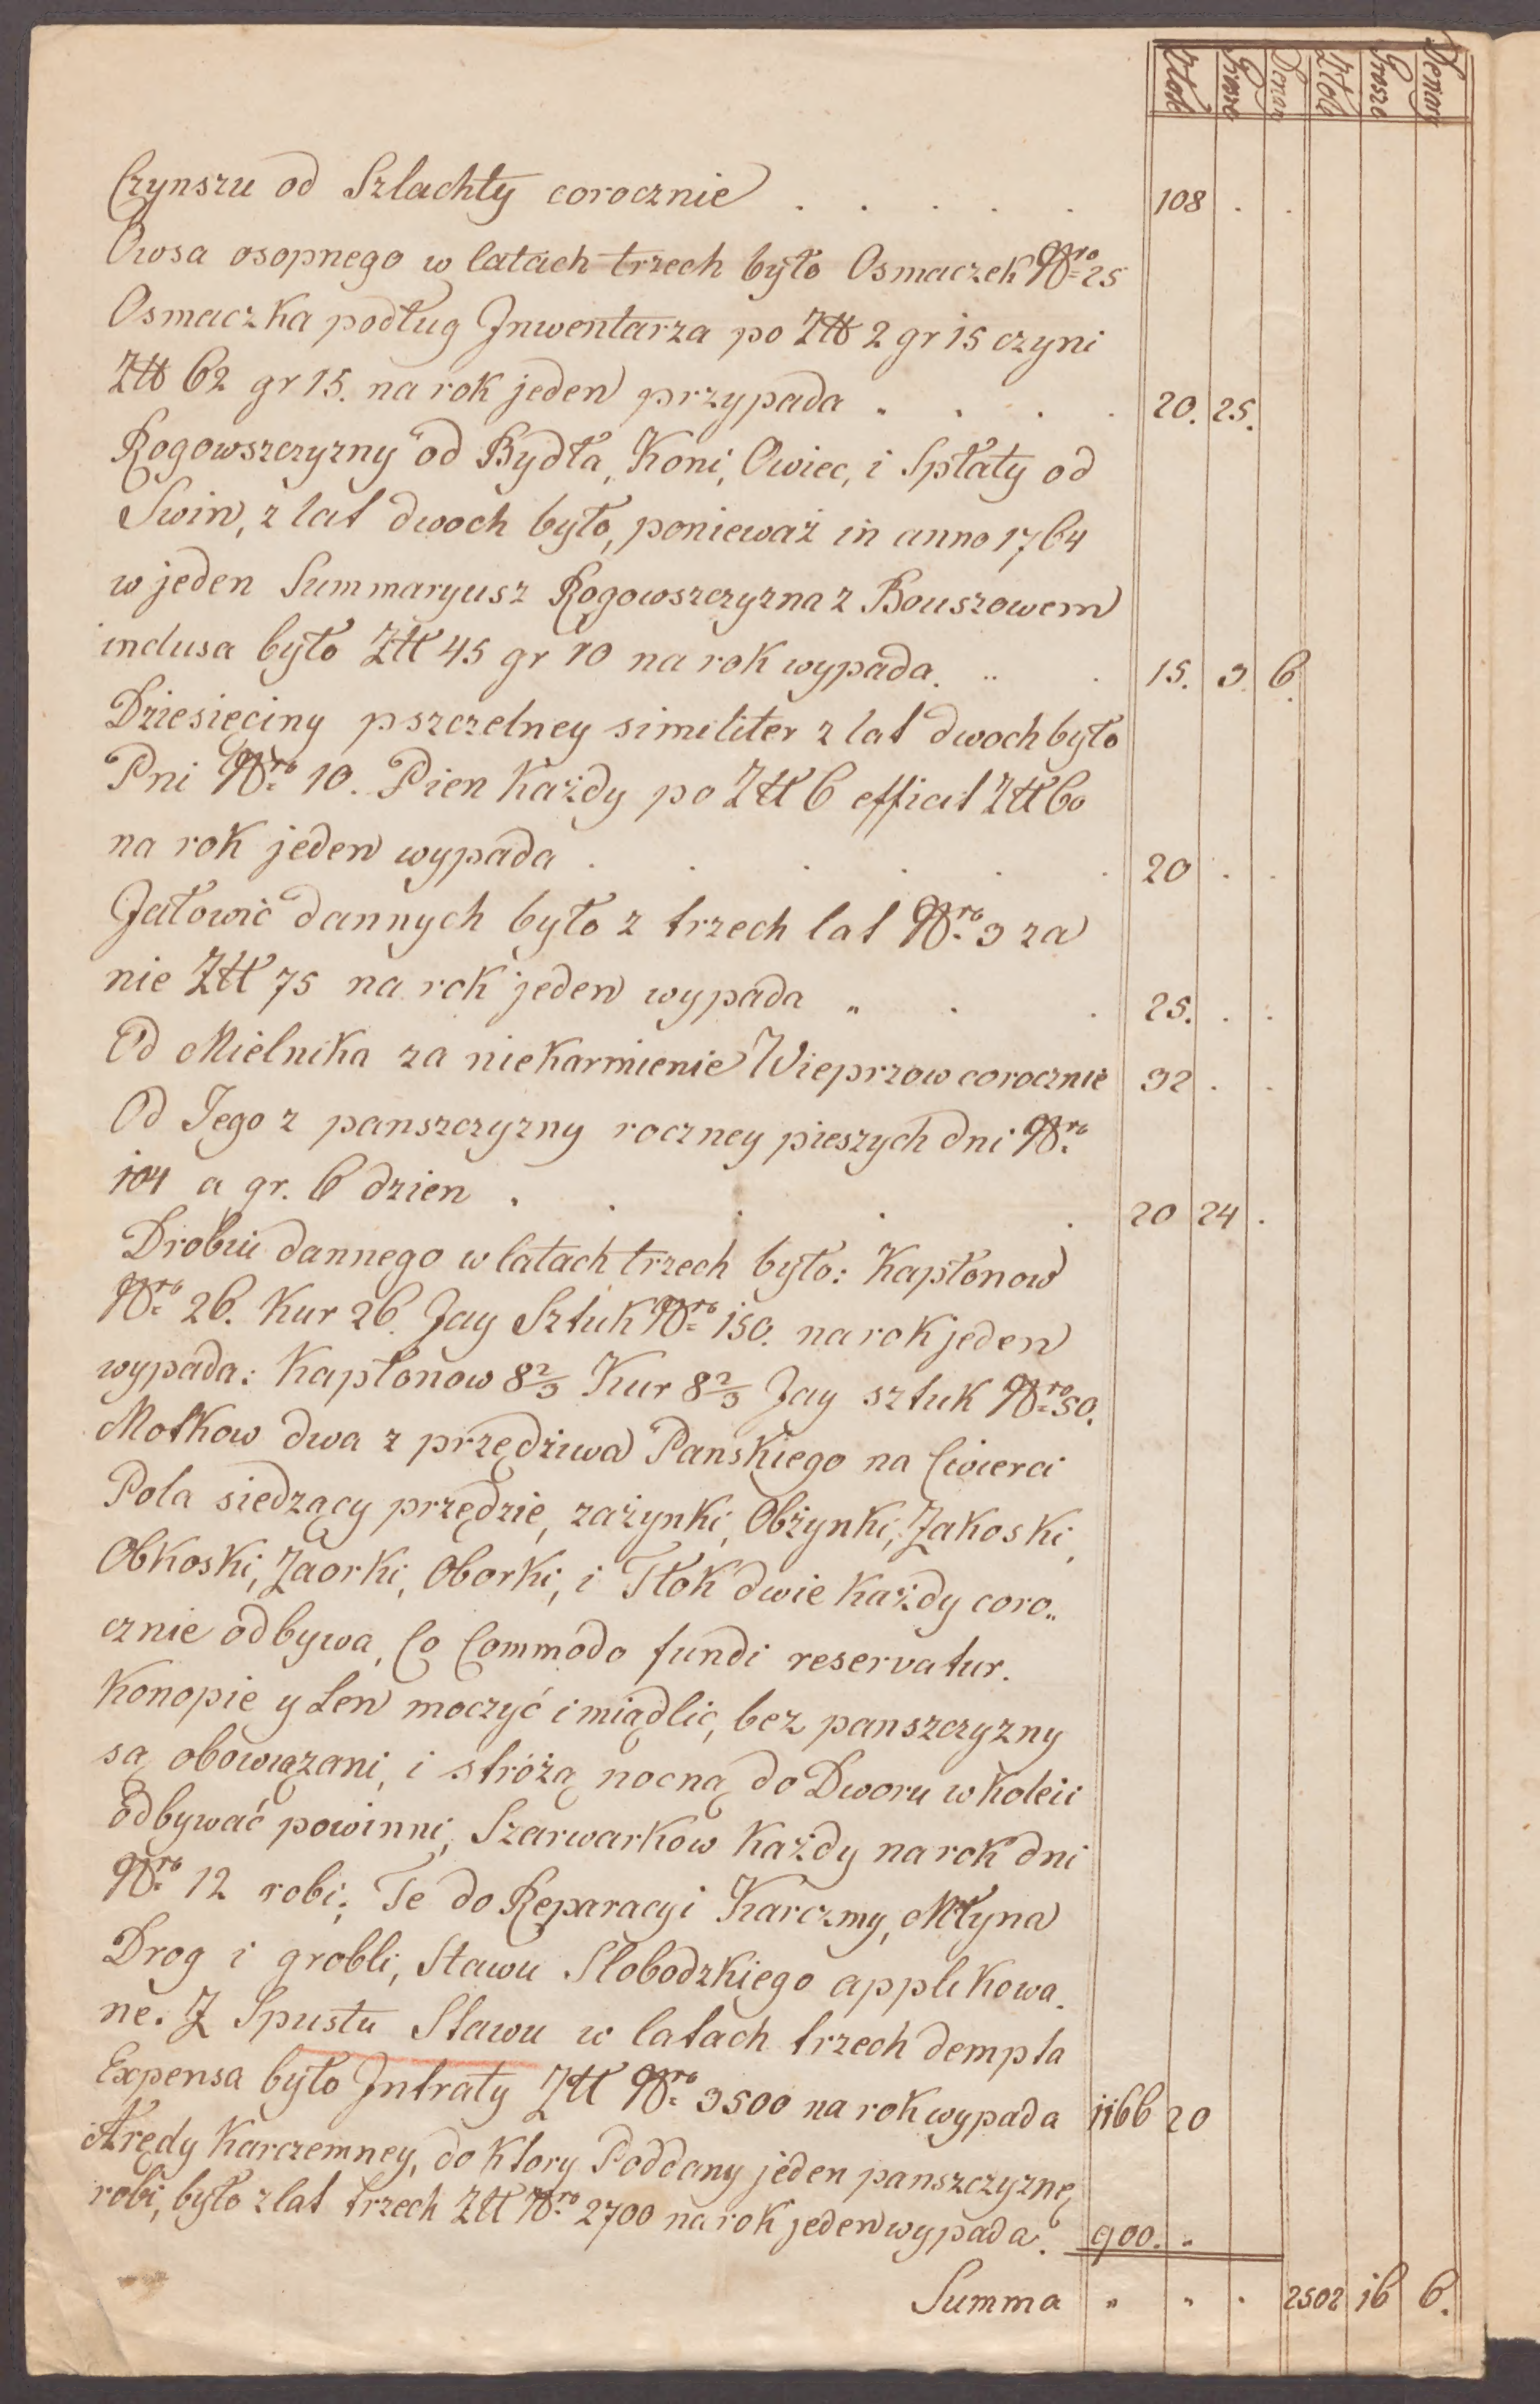 Złote Grosze Denar Złote Grosze Denary
Czynszu od Szlachty corocznie . . . . . 108 . .
Owsa osopnego w latach trzech było Osmaczek Nro 25
Osmaczka podług Jnwentarza po Ztt 2 gr 15 czyni
Ztt 62 gr 15. na rok jeden przypada . . . . 20. 25.
Rogowszczyzny od Bydła, Koni, Owiec, i Spłaty od
Swin, z lat dwoch było, ponieważ in anno 1764
w jeden Summaryusz Rogowszczyzna z Bouszowem
inclusa było Ztt 45 gr 10 na rok wypada. .. . 15. 3. 6.
Dziesięciny pszczelney similiter z lat dwoch było
Pni Nro 10. Pien Każdy po Ztt 6 efficit Ztt 60
na rok jeden wypada . . . . . . 20 . .
Jałowic dannych było z trzech lat Nro 3 za
nie Ztt 75 na rok jeden wypada „ . . 25. . .
Od Mielnika za niekarmienie Wieprzow corocznie 32 . .
Od Tego z panszczyzny roczney pieszych dni Nro
104 a gr. 6 dzien . . . . . 20 24 .
Drobiu dannego w latach trzech było: Kapłonow
Nro 26. Kur 26. Jay Sztuk Nro 150. na rok jeden
wypada: Kapłonow 8 2/3 Kur 8 2/3 Jay sztuk Nro 50.
Motkow dwa z przędziwa Panskiego na Cwierci
Pola siedzący przędzie, zażynki, Obżynki, Zakoski,
Obkoski, Zaorki, Oborki, i Tłok dwie każdy coro„
cznie odbywa, Co Commodo fundi reservatur.
Konopie y Len moczyć i miądlic, bez panszczyzny
są obowiązani, i stróżą nocną do Dworu w koleii
odbywać powinni, Szarwarkow Każdy na rok dni
Nro 12 robi; Te do Reparacyi Karczmy, Młyna
Drog i grobli, Stawu Slobodzkiego applikowa.
ne. Z Spustu Stawu w latach trzech dempta
Expensa było Jntraty Ztt Nro 3500 na rok wypada 1166 20
Arędy Karczemney, do Ktory Poddany jeden panszczyznę
robi, było z lat trzech Ztt Nro 2700 na rok jeden wypada. 900. „
Summa „ „ . 2502 16 6.